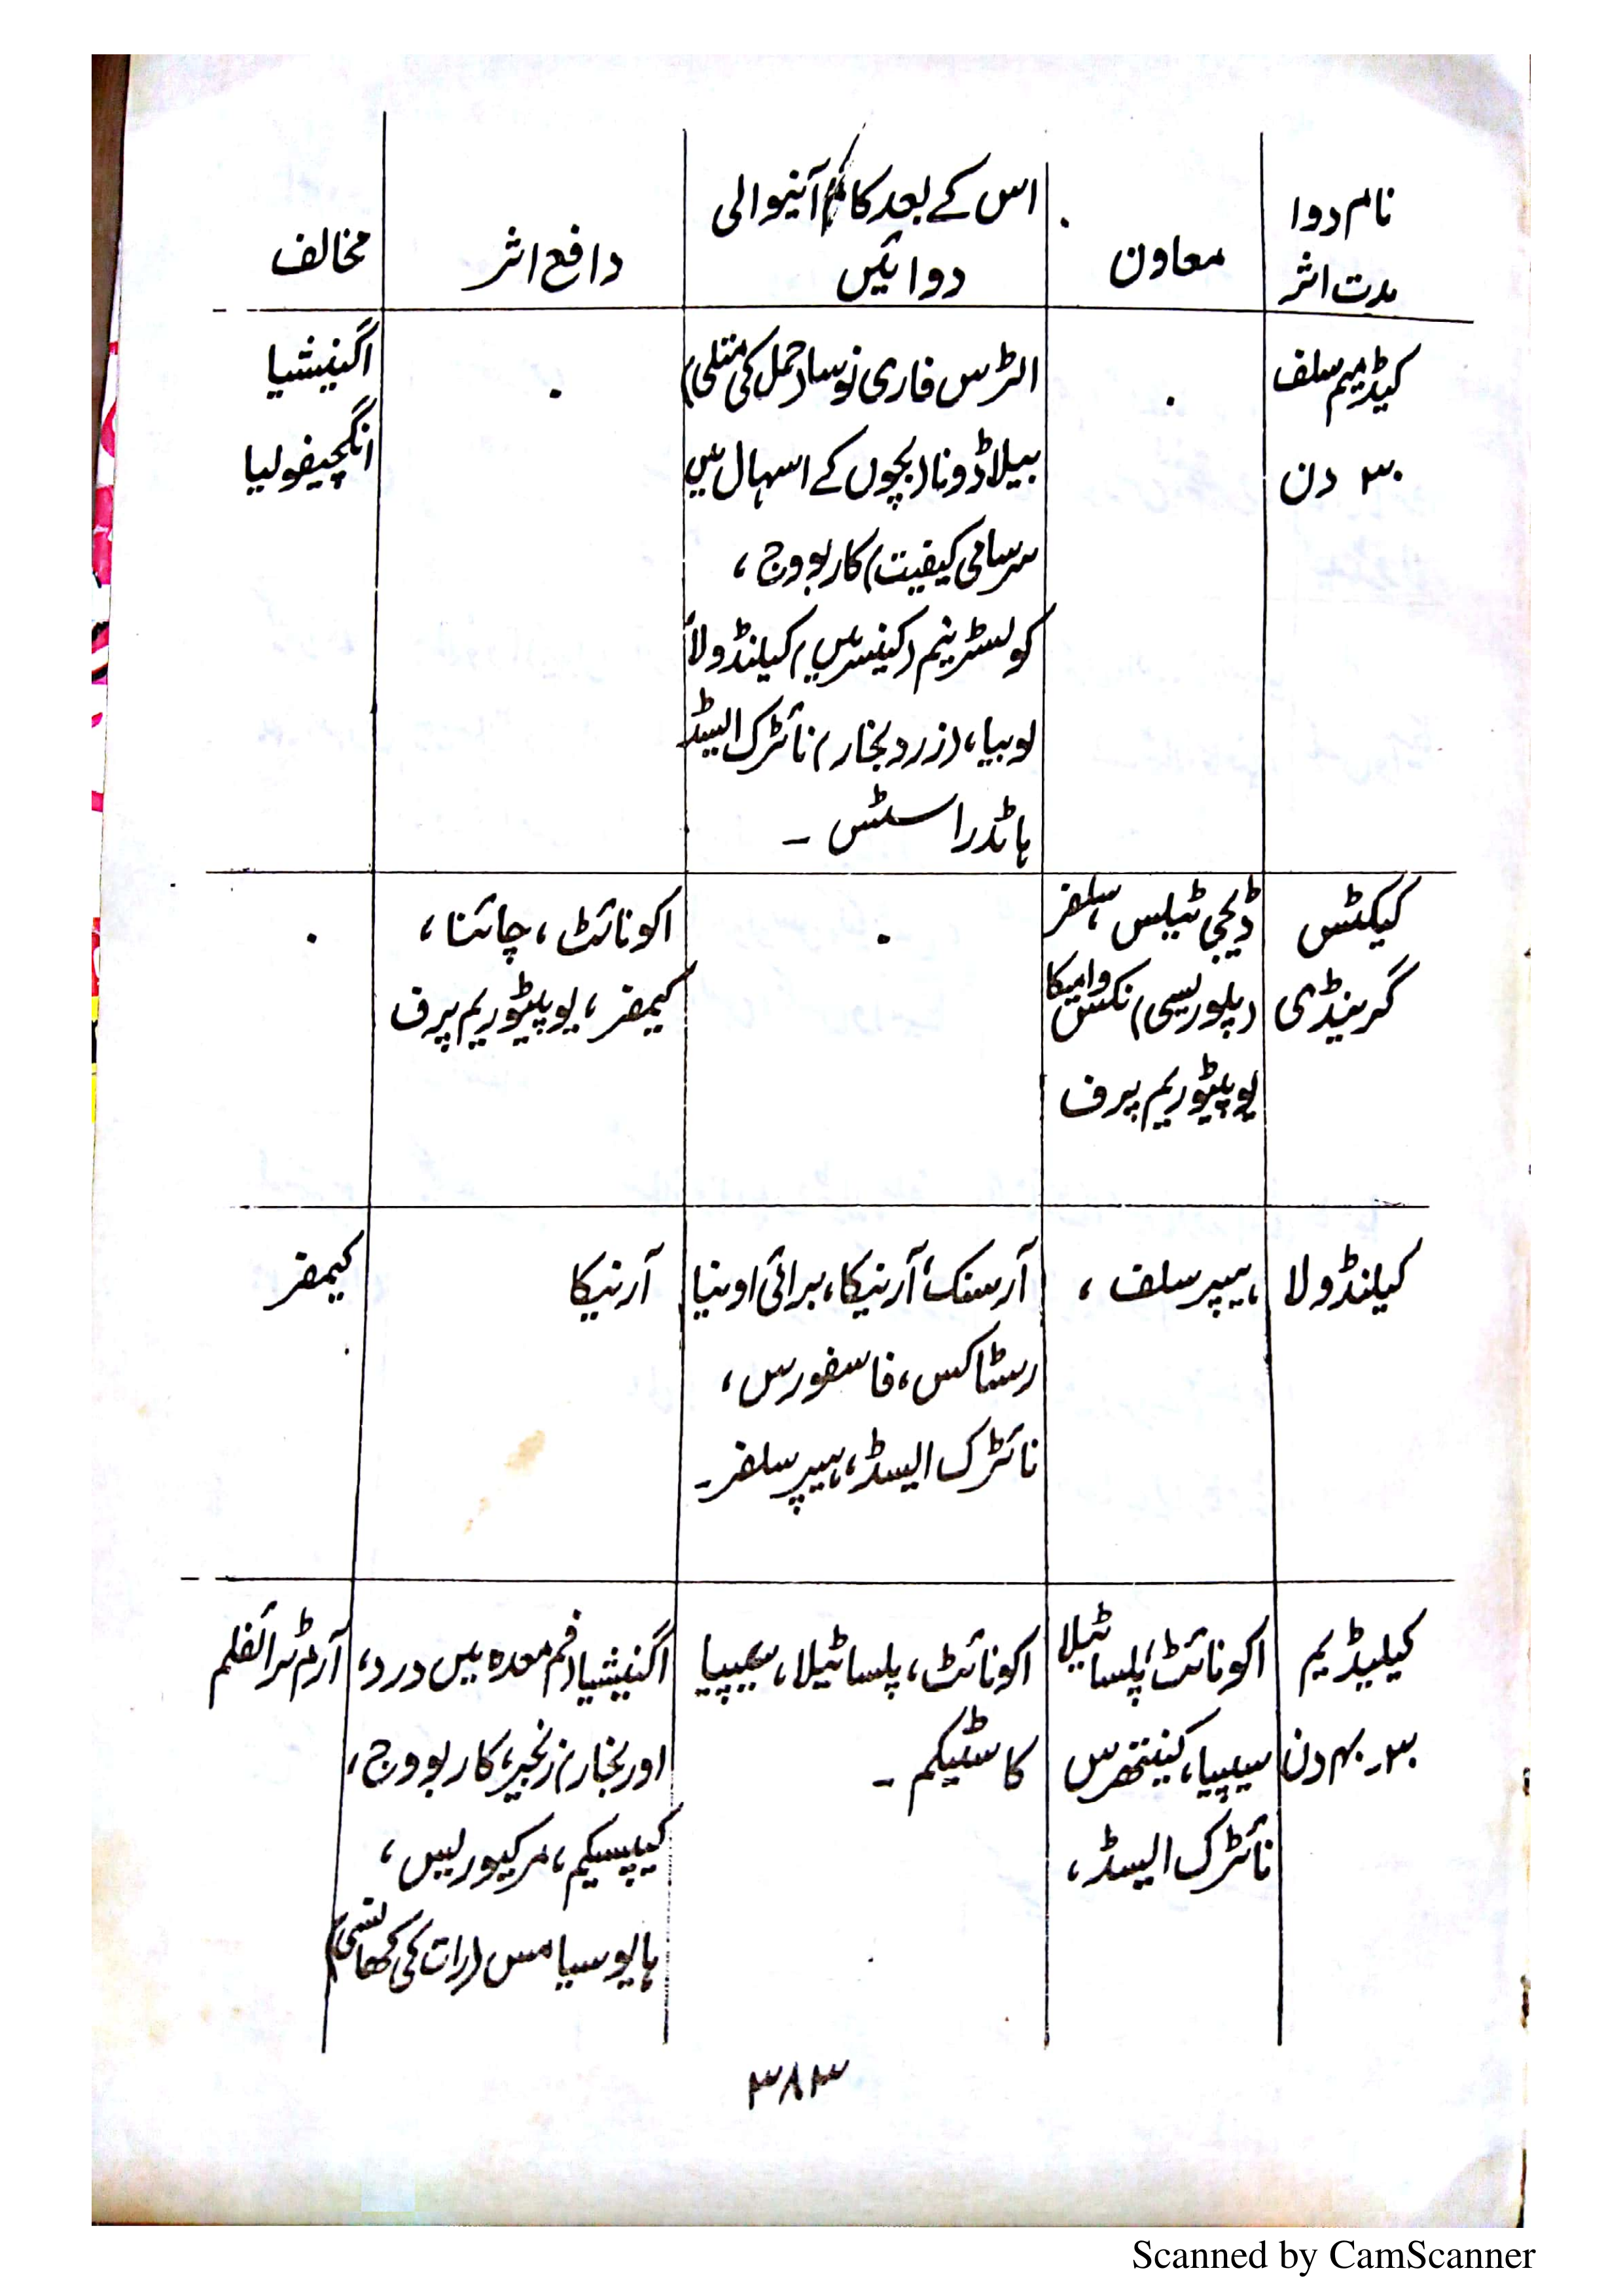 نام دوا
مدت اثر
معاون
اس کے بعد کام آنیوالی
دوائیں
دافع اثر
مخالف
کیڈمیم سلف
۳۰ دن
الٹرس فاری نوسا (حمل کی متلی)
بیلاڈونا (بچوں کے اسہال میں
سرسامی کیفیت) کاربووج ،
کولسٹرینم (کینسر میں) کیلنڈولا
لوبیا، (زرد بخار) نائٹرک ایسڈ
ہائڈراسٹس ۔
اگنیشیا
انگچیفولیا
کیکٹس
گرینڈی
ڈیجی ٹیلس، سلفر
(پلوریسی) نکس وامیکا
یوپیٹوریم پرف
اکونائٹ ، چائنا ،
کیمفر ، یوپیٹوریم پرف
کیلنڈولا
ہیپر سلف ،
آرسنک، آرنیکا، برائی اونیا
رسٹاکس ، فاسفورس ،
نائٹرک ایسڈ، ہیپر سلفر۔
آرنیکا
کیمفر
کیلیڈیم
۳۰۔۴۰ دن
اکونائٹ، پلساٹیلا
سیپیا، کینتھرس
نائٹرک ایسڈ ،
اکونائٹ ، پلساٹیلا ، سیپیا
کاسٹیکم ۔
اگنیشیا (فم معدہ میں درد،
اور بخار) زنجبر، کاربووج ،
کیپسیکم ، مرکیوریس ،
ہایوسیامس (رات کی کھانسی)
آرم ٹرائفلم
۳۸۳
Scanned by CamScanner